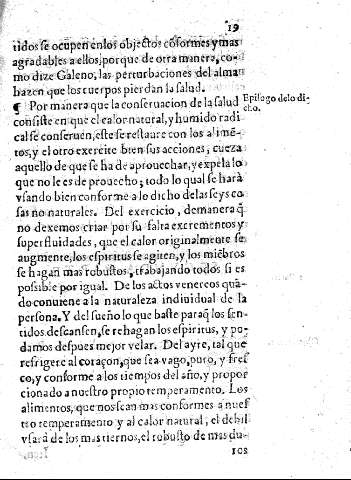 19
tidos se ocupen enlos objectos cõformes y mas
agradables a ellos, porque de otra manera, co-
mo dize Galeno, las perturbaciones del alma
hazen que los cuerpos pierdan la salud.
¶ Por manera que la conseruacion de la salud
Epilogo delo di-
cho.
consiste en que el calor natural, y humido radi
cal se conseruen, este se restaure con los alimẽ-
tos, y el otro exercite bien sus acciones, cueza
aquello de que se ha de aprouechar, y expela lo
que no le es de prouecho; todo lo qual se harà
vsando bien conforme a lo dicho delas seys co
sas no naturales. Del exercicio, demanera q̃
no dexemos criar por su falta excrementos y
superfluidades, que el calor originalmente se
augmente, los espiritus se agiten, y los miẽbros
se hagan mas robustos, trabajando todos si es
possible por igual. De los actos venereos quã-
do conuiene a la naturaleza indiuidual de la
persona. Y del sueño lo que baste paraq̃ los sen-
tidos descansen, se rehagan los espiritus, y po-
damos despues mejor velar. Del ayre, tal que
refrigere al coraçon, que sea vago, puro, y fres
co, y conforme a los tiempos del año, y propor
cionado a nuestro propio temperamento. Los
alimentos, que nos sean mas conformes a nues
tro temperamento y al calor natural; el debil
vsarà de los mas tiernos, el robusto de mas du-
ros